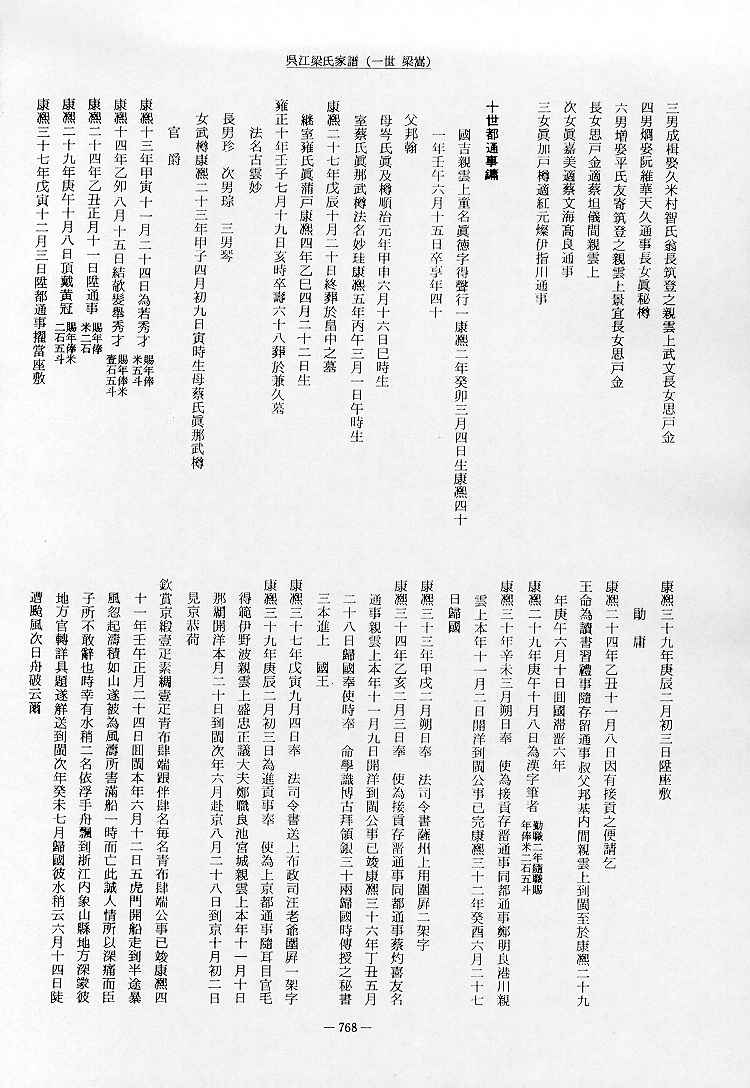 呉江梁氏家譜（一世 梁嵩）
三男成楫娶久米村智氏翁長筑登之親雲上武文長女思戸金
四男烱娶阮維華天久通事長女眞秘樽
六男増娶平氏友寄筑登之親雲上景宜長女思戸金
長女思戸金適蔡坦儀間親雲上
次女眞嘉美適蔡文海高良通事
三女眞加戸樽適紅元燦伊指川通事
十世都通事鏞
國吉親雲上童名眞德字得聲行一康熙二年癸卯三月四日生康熙四十
一年壬午六月十五日卒享年四十
父邦翰
母岑氏眞及樽順治元年甲申六月十六日巳時生
室蔡氏眞那武樽法名妙珪康熙五年丙午三月一日午時生
康熙二十七年戊辰十月二十日終葬於畠中之墓
繼室雍氏眞蒲戸康熙四年乙巳四月二十二日生
雍正十年壬子七月十九日亥時卒壽六十八葬於兼久墓
法名古雲妙
長男珍 次男琮 三男琴
女武樽康熙二十三年甲子四月初九日寅時生母蔡氏眞那武樽
官 爵
康熙十三年甲寅十一月二十四日為若秀才 賜年俸米五斗
康熙十四年乙夘八月十五日結欹髮舉秀才 賜年俸米壹石五斗
康熙二十四年乙丑正月十一日陞通事 賜年俸米二石
康熙二十九年庚午十月八日頂戴黃冠 賜年俸米二石五斗
康熙三十七年戊寅十二月三日陞都通事擢當座敷
康熙三十九年庚辰二月初三日陞座敷
勛 庸
康熙二十四年乙丑十一月八日因有接貢之便請乞
王命為讀書習禮事隨存留通事叔父邦基内間親雲上到閩至於康熙二十九
年庚午六月十日囬國滯晋六年
康熙二十九年庚午十月八日為漢字筆者 勤職二年隨職賜年俸米二石五斗
康熙三十年辛未三月朔日奉 使為接貢存晋通事同都通事鄭明良港川親
雲上本年十一月二日開洋到閩公事已完康熙三十二年癸酉六月二十七
日歸國
康熙三十三年甲戌二月朔日奉 法司令書薩州上用圍屏二架字
康熙三十四年乙亥二月三日奉 使為接貢存晋通事同都通事蔡灼喜友名
通事親雲上本年十一月九日開洋到閩公事已竣康熙三十六年丁丑五月
二十八日歸國奉使時奉 命學識博古拜領銀三十兩歸國時傳授之秘書
三本進上 國王
康熙三十七年戊寅九月四日奉 法司令書送上布政司汪老爺圍屏一架字
康熙三十九年庚辰二月初三日為進貢事奉 使為上京都通事隨耳目官毛
得範伊野波親雲上盛忠正議大夫鄭職良池宮城親雲上本年十一月十日
那覇開洋本月二十日到閩次年六月赴京八月二十八日到京十月初二日
見京恭荷
欽賞京緞壹疋素綢壹疋青布肆端跟伴肆名毎名青布肆端公事已竣康熙四
十一年壬午正月二十四日囬閩本年六月十二日五虎門開船走到半途暴
風忽起濤積如山遂被為風濤所害滿船一時而亡此誠人情所以深痛而臣
子所不敢辭也時幸有水稍二名依浮手舟飄到浙江内象山縣地方深蒙彼
地方官轉詳具題遂觧送到閩次年癸未七月歸國彼水稍云六月十四日陡
遭颱風次日舟破云爾
— 768 —